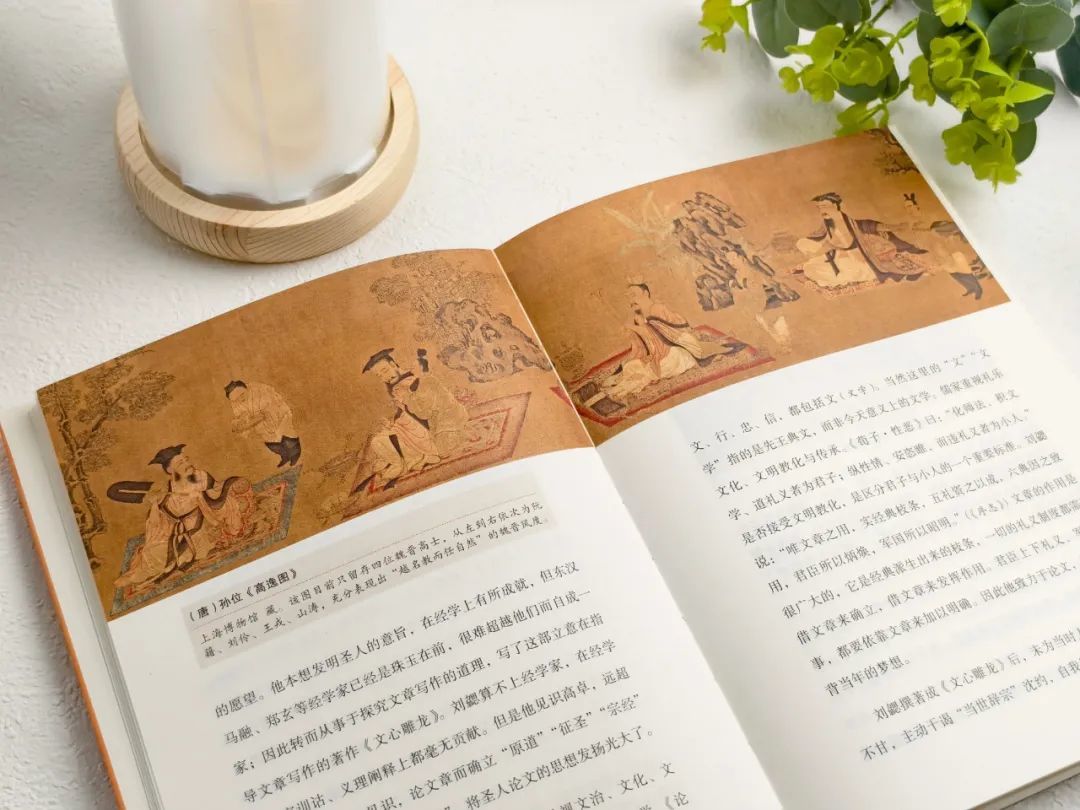 （唐）孙位《高逸图》
上海博物馆 藏。该图目前只留存四位魏晋高士，从左到右依次为阮
籍、刘伶、王戎、山涛，充分表现出“越名教而任自然”的魏晋风度
的愿望。他本想发明圣人的意旨，在经学上有所成就，但东汉
马融、郑玄等经学家已经是珠玉在前，很难超越他们而自成一
家；因此转而从事于探究文章写作的道理，写了这部立意在指
导文章写作的著作《文心雕龙》。刘勰算不上经学家，在经学
训诂、义理阐释上都毫无贡献。但是他见识高卓，远超
识，论文章而确立“原道”“征圣”“宗经”
将圣人论文的思想发扬光大了。
文治、文化、文
《论
文、行、忠、信，都包括文（文字）。当然这里的“文”“文
学”指的是先王典文，而非今天意义上的文学。儒家重视礼乐
文化、文明教化与传承。《荀子·性恶》曰：“化师法，积文
学、道礼义者为君子；纵性情、安恣睢、而违礼义者为小人”
是否接受文明教化，是区分君子与小人的一个重要标准。刘勰
说：“唯文章之用，实经典枝条，五礼资之以成，六典因之致
用，君臣所以炳焕，军国所以昭明。”（《序志》）文章的作用是
很广大的，它是经典派生出来的枝条，一切的礼义制度都需
借文章来确立，借文章来发挥作用。君臣上下礼义、军
事，都要依靠文章来加以明确。因此他致力于论文，
背当年的梦想。
刘勰撰著成《文心雕龙》后，未为当时
不甘，主动干谒“当世辞宗”沈约，自我